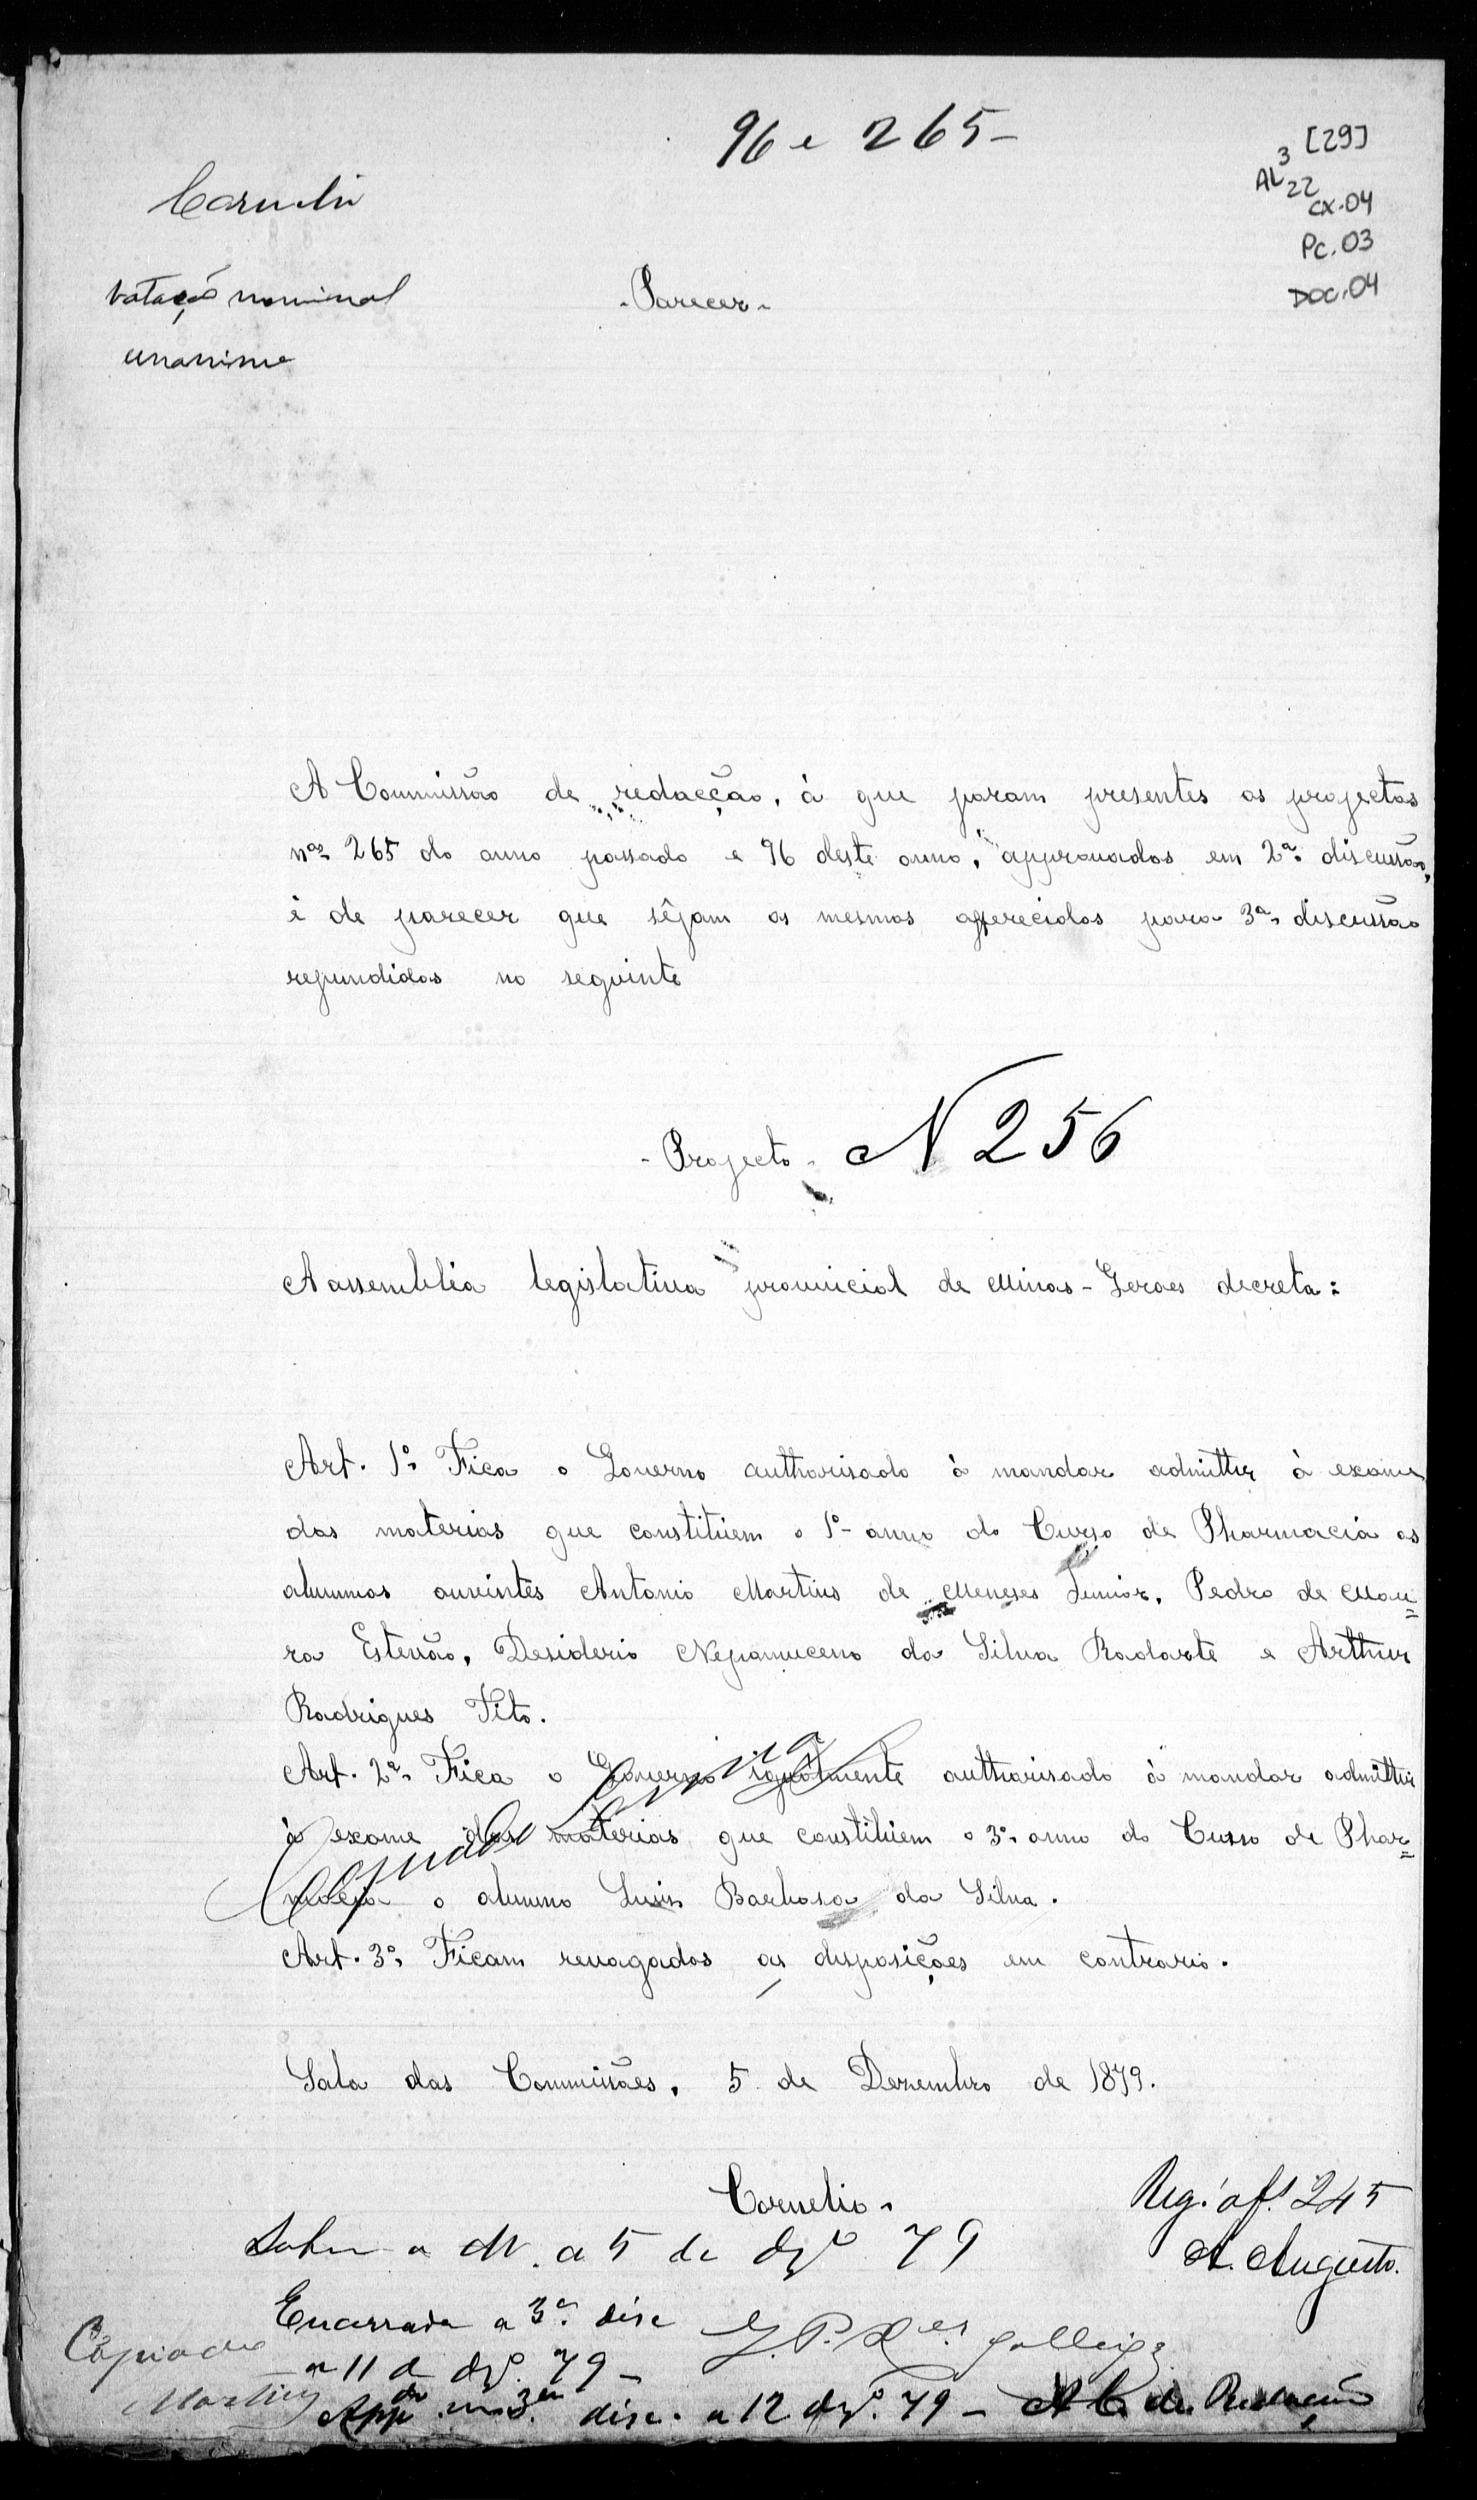 96 e 265-
[29]
AL 3
22
CX.04
Pc. 03
DOC.04
Cornelio
votação nominal
unanime
- Parecer -
A Commissão de redacção, à que foram presentes os projectos
nos 265 do anno passado e 96 deste anno, approvados em 2a. discussão,
é de parecer que sêjam os mesmos offerecidos para 3a. discussão
refundidos no seguinte
- Projecto - N 256
A assembléa legislativa provincial de Minas-Geraes decreta:
Art. 1º. Fica o Governo authorisado à mandar admittir à exame
das materias que constitúem o 1º anno do Curso de Pharmacia os
alumnos ouvintes Antonio Martins de Meneses Junior, Pedro de Mou=
ra Estevão, Desiderio Nepomuceno da Silva Rodarte e Arthur
Rodrigues Tito.
Art. 2º. Fica o Governo igualmente authorisado à mandar admittir
à exame das materias que constitúem o 3º. anno do Curso de Phar=
macia o alumno Luis Barbosa da Silva.
Art. 3º. Ficam revogadas as disposições em contrario.
Sala das Commissões, 5 de Dezembro de 1879.
Cornelio.
Reg. a fl. 245
A. Augusto.
a 5 de dzº 79
Encerrada a 3a. disc
a 11 de dzº. 79 -
Copiado
Martins
App. em 3a. disc. a 12 dzº. 79 - A C. de Redacção